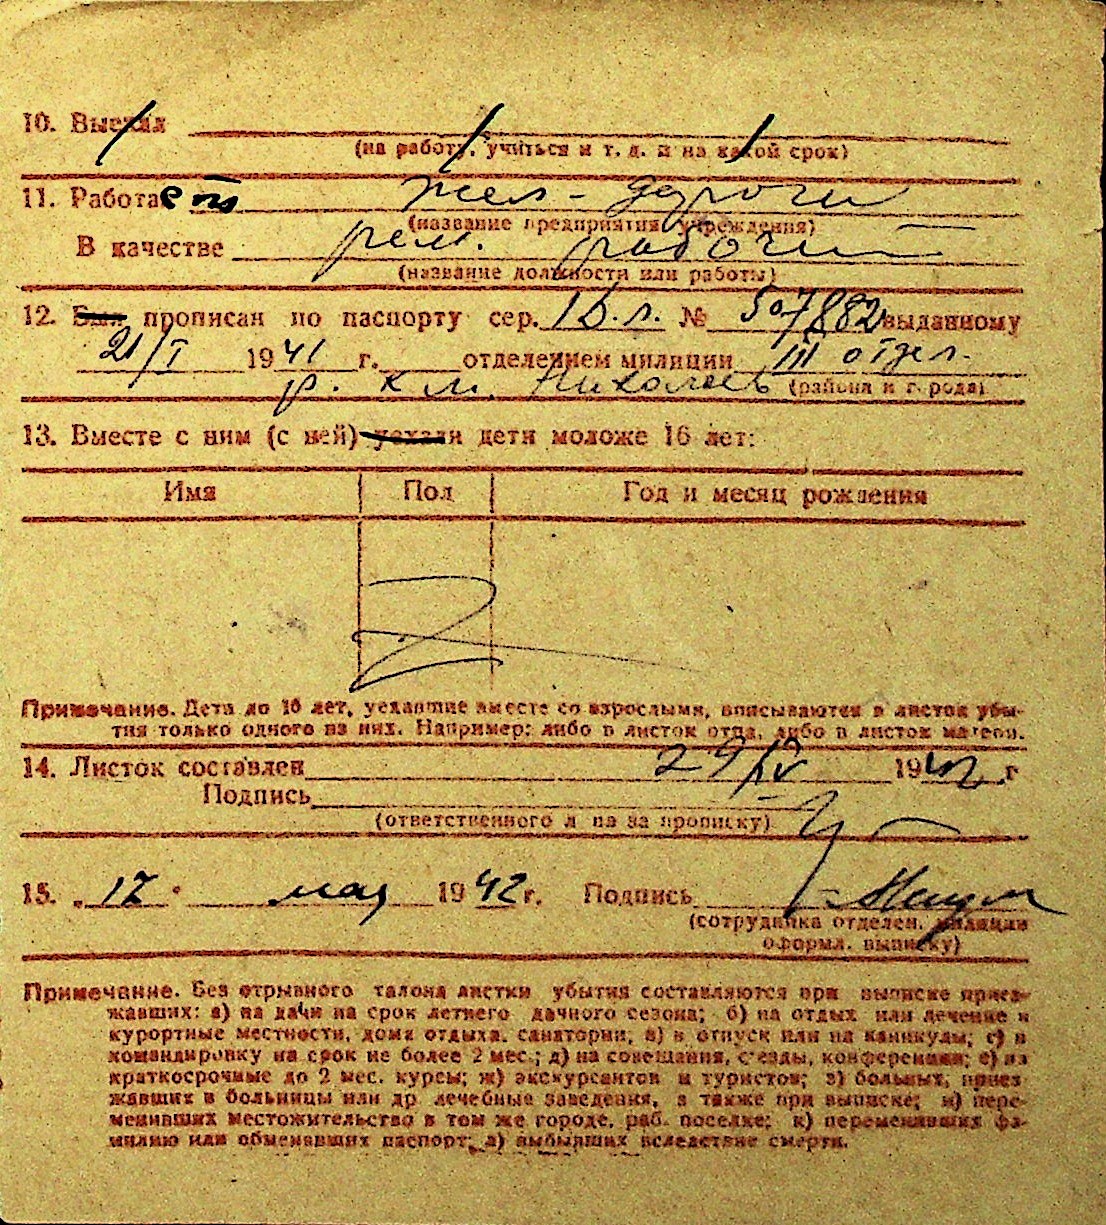 10. Выехал
(на работу, учиться и т. д. и на какой срок)
11. Работает жел-дороги
(название предприятия учреждения)
В качестве рем. рабочий
(название должности или работы)
12. Был прописан по паспорту сер. № 507882 выданному
21/I 1941 г. отделением милиции III отдел.
р. к м. Николаев (района и города)
13. Вместе с ним (с ней) уехали дети моложе 16 лет:
Имя Пол Год и месяц рождения
Примечание. Дети до 16 лет, уехавшие вместе со взрослыми, вписываются в листок убы-
тия только одного из них. Например: либо в листок отца, либо в листок матери.
14. Листок составлен 29/IV 1942 г
Подпись
(ответственного лица за прописку)
15. „17" мая 1942 г. Подпись
(сотрудника отделен. милиции
оформл. выписку)
Примечание. Без отрывного талона листки убытия составляются при выписке приез-
жавших: а) на дачи на срок летнего дачного сезона; б) на отдых или лечение в
курортные местности, дома отдыха, санатории; в) в отпуск или на каникулы; г) в
командировку на срок не более 2 мес.; д) на совещания, съезды, конференции; е) на
краткосрочные до 2 мес. курсы; ж) экскурсантов и туристов; з) больных, приез
жавших в больницы или др. лечебные заведения, а также при выписке; и) пере-
менивших местожительство в том же городе, раб. поселке; к) переменивших фа-
милию или обменявших паспорт; л) выбывших вследствие смерти.